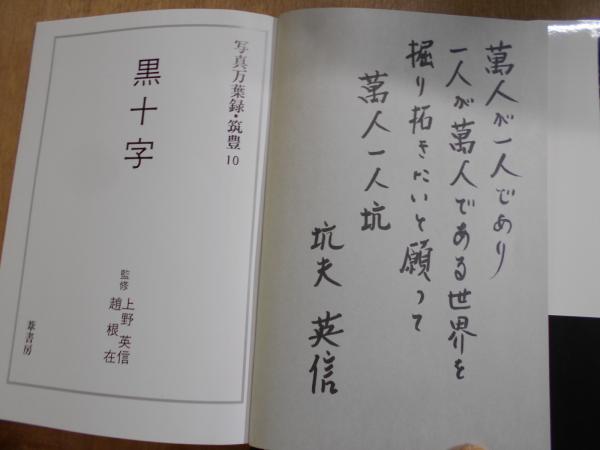 萬人が一人であり
一人が萬人である世界を
掘り拓きたいと願って
萬人一人坑
坑夫 英信
写真万葉録・筑豊 10
黒十字
監修 上野英信
趙根在
葦書房